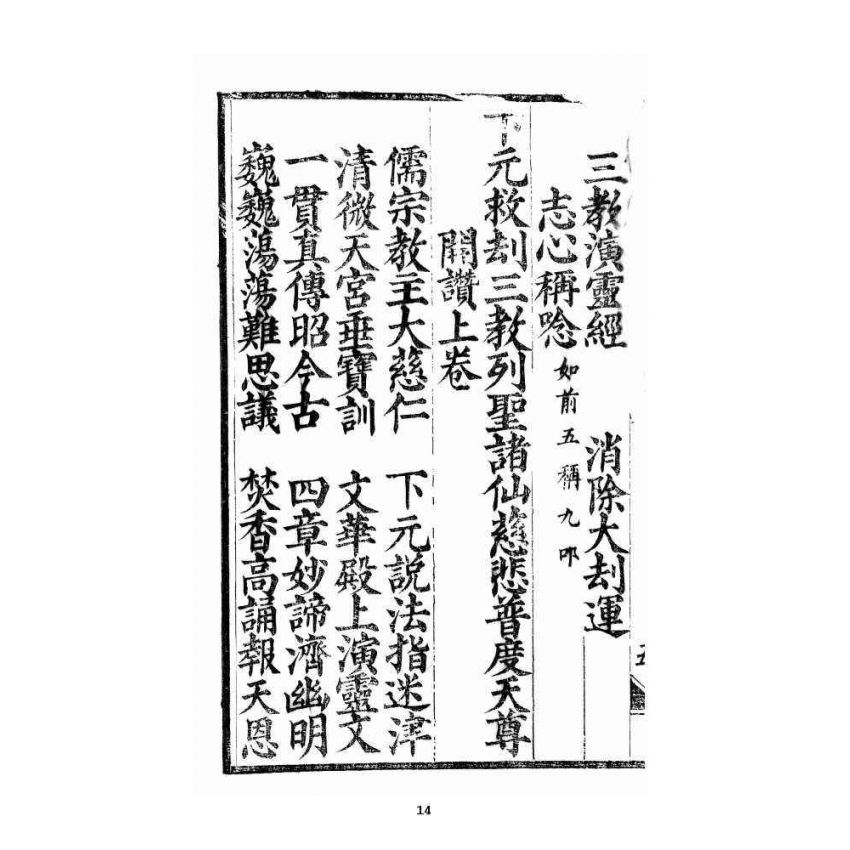 三教演靈經 消除大刦運
志心稱唸 如前五稱九叩
下元救刦三教列聖諸仙慈悲普度天尊
開讚上卷
儒宗教主大慈仁 下元說法指迷津
清微天宮垂寶訓 文華殿上演靈文
一貫真傳昭今古 四章妙諦濟幽明
巍巍蕩蕩難思議 焚香高誦報天恩
14